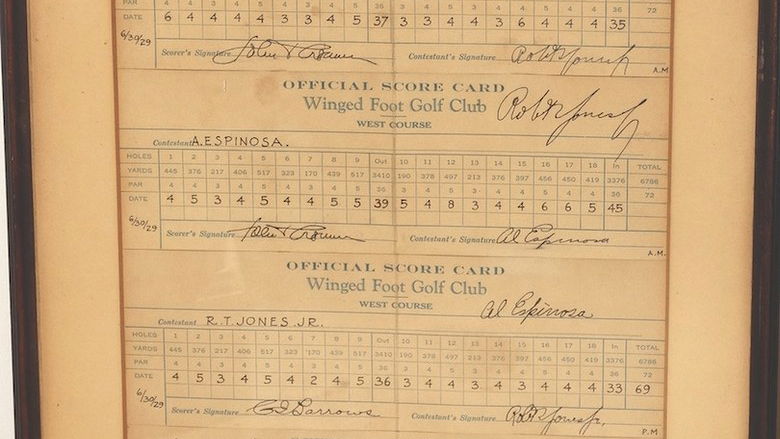 PAR 4 4 3 4 5 4 3 4 5 36 4 3 5 3 4 4 4 4 4 36 72
DATE 6 4 4 4 4 3 3 4 5 37 3 3 4 3 6 4 4 4 35
6/30/29 Scorer's Signature Contestant's Signature Robt T Jones Jr A.M
OFFICIAL SCORE CARD
Winged Foot Golf Club Robt T Jones Jr
WEST COURSE
Contestant A. ESPINOSA.
HOLES 1 2 3 4 5 6 7 8 9 Out 10 11 12 13 14 15 16 17 18 In TOTAL
YARDS 445 376 217 406 517 323 170 439 517 3410 190 378 497 213 376 397 456 450 419 3376 6786
PAR 36 36 72
DATE 4 5 3 4 5 4 4 5 5 39 5 4 8 3 4 4 6 6 5 45
6/30/29 Scorer's Signature Contestant's Signature Al Espinosa A.M.
OFFICIAL SCORE CARD
Winged Foot Golf Club Al Espinosa
WEST COURSE
Contestant R. T. JONES. JR.
HOLES 1 2 3 4 5 6 7 8 9 Out 10 11 12 13 14 15 16 17 18 In TOTAL
YARDS 445 376 217 406 517 323 170 439 517 3410 190 378 497 213 376 397 456 450 419 3376 6786
PAR 36 36 72
DATE 4 5 3 4 5 4 2 4 5 36 3 4 4 3 4 3 4 4 4 33 69
6/30/29 Scorer's Signature Contestant's Signature Robt T Jones Jr. P.M